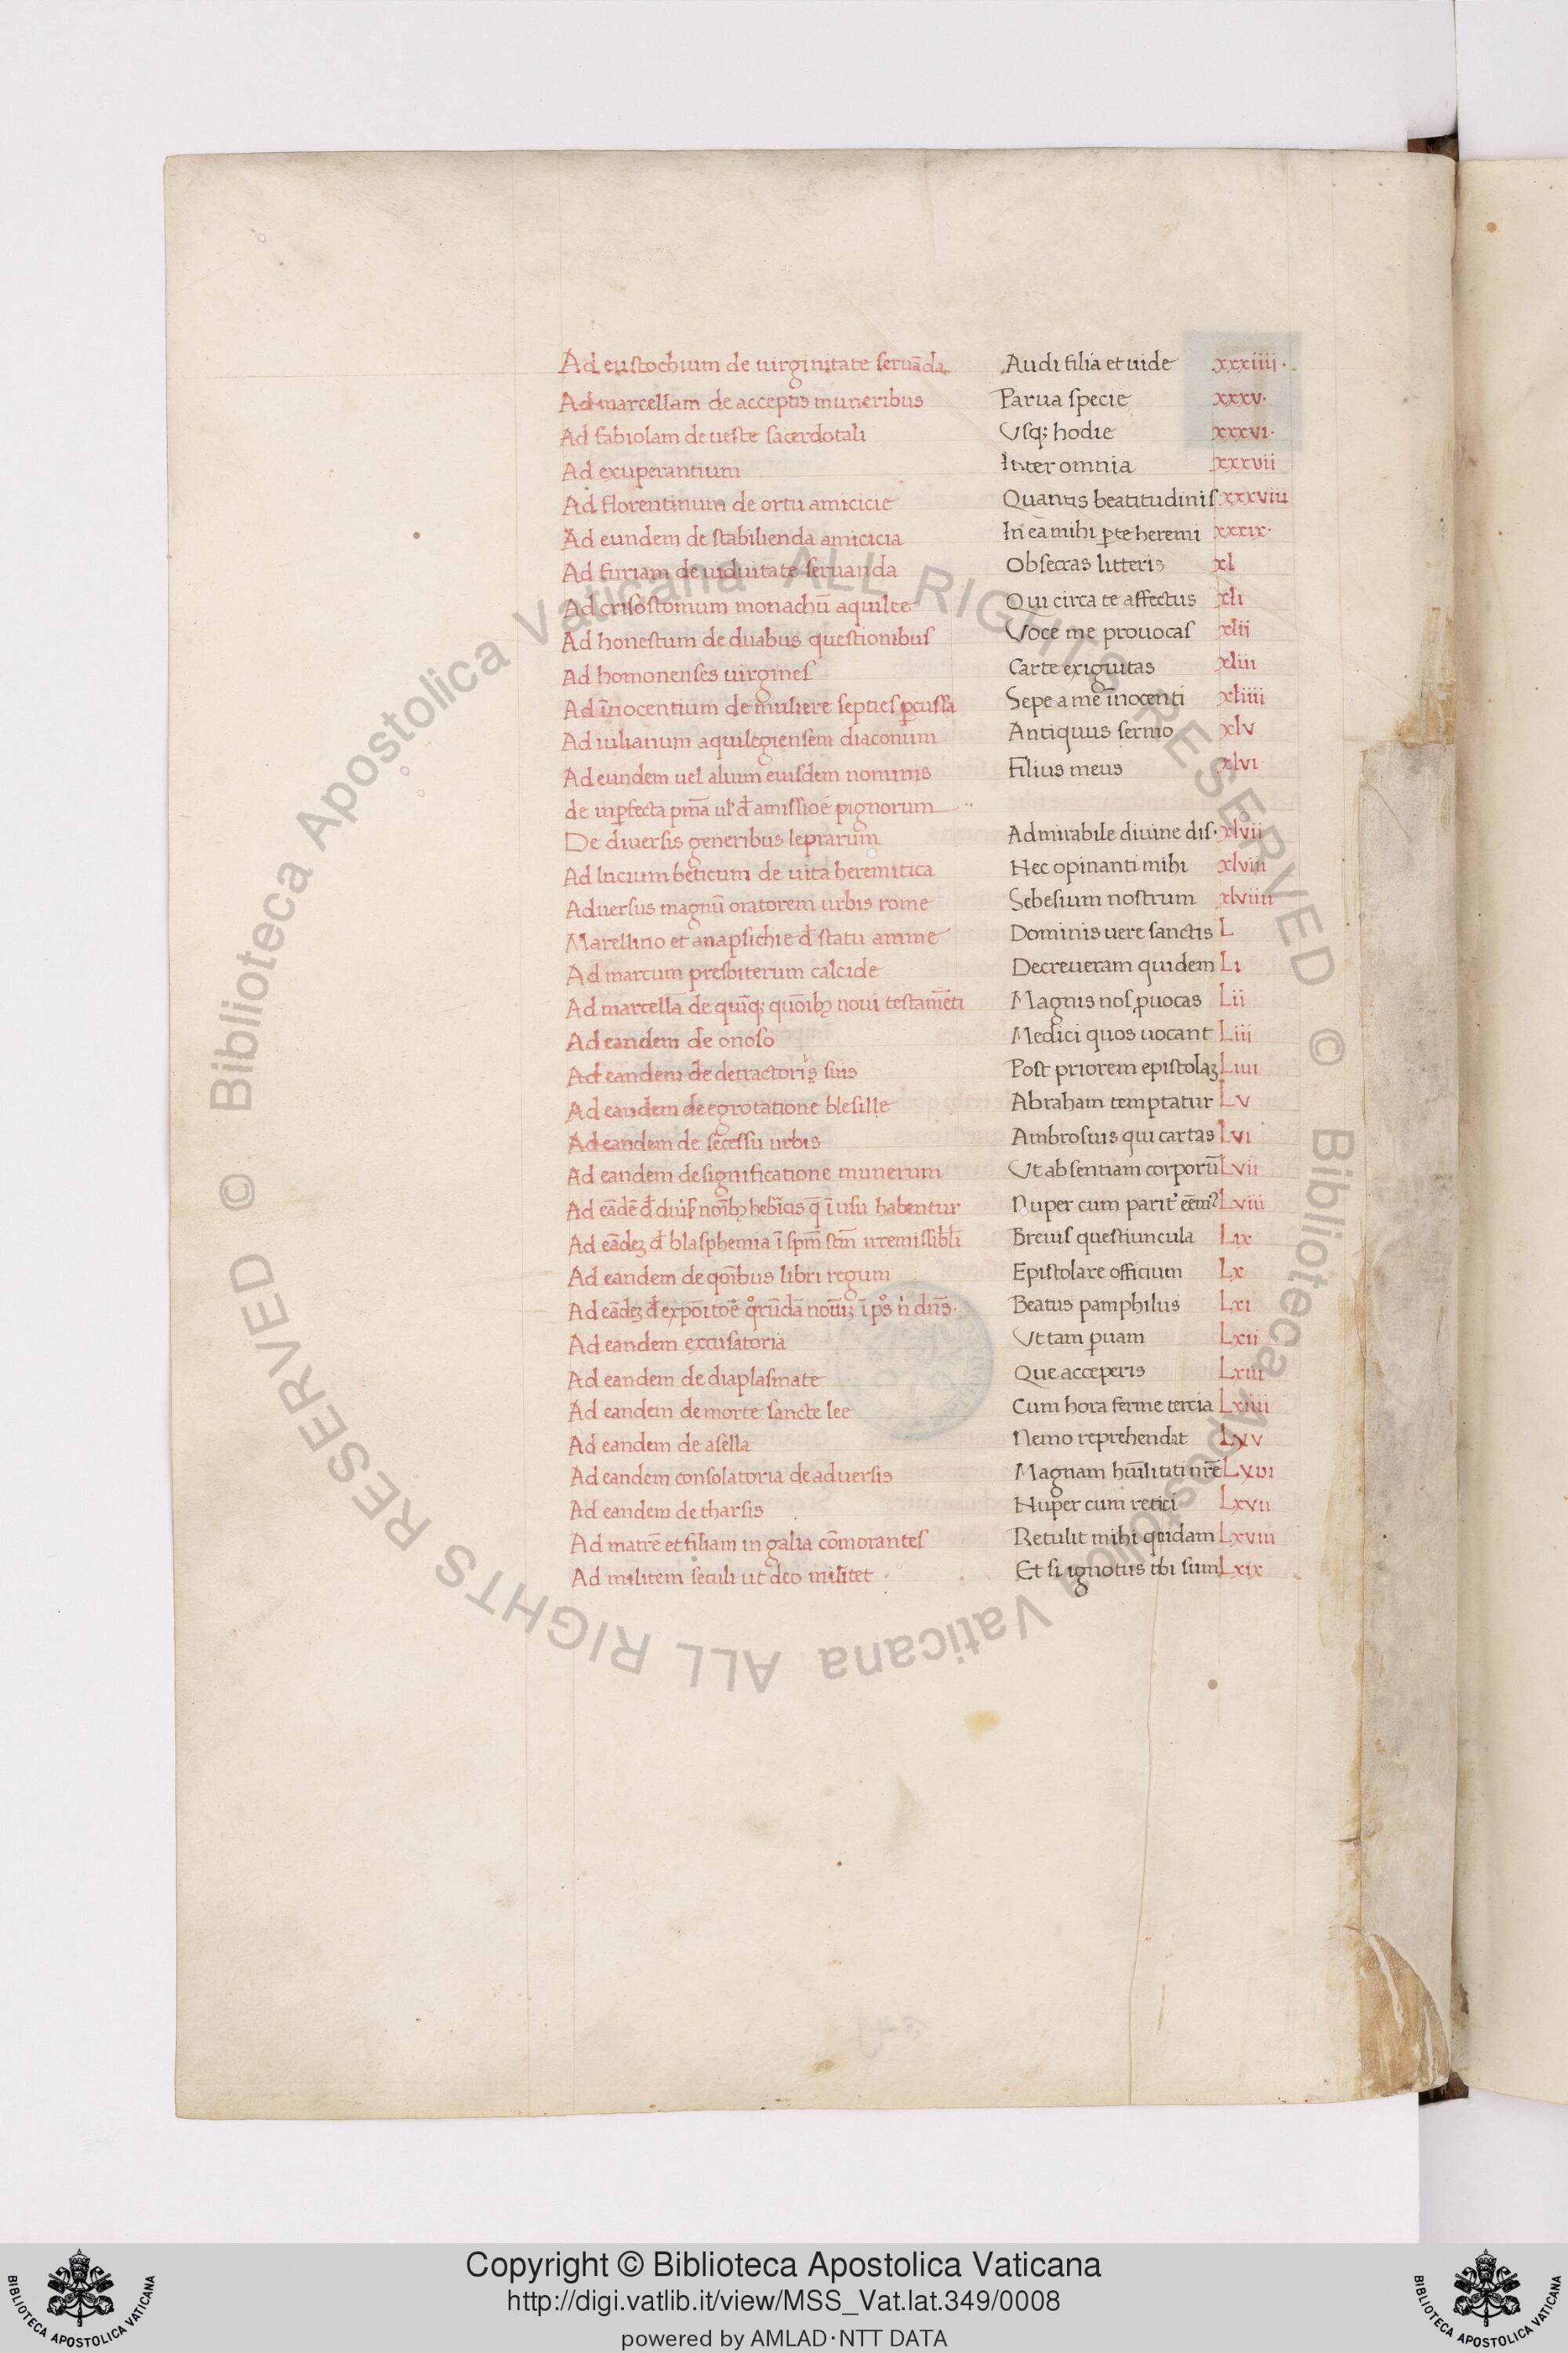 Ad eustochium de uirginitate seruāda Audi filia et uide xxxiiii.
Ad marcellam de acceptis muneribus Parua specie xxxv.
Ad fabiolam de ueste sacerdotali Usq; hodie xxxvi.
Ad exuperantium Inter omnia xxxvii
Ad florentinum de ortu amicicie Quantis beatitudinis xxxviii
Ad eundem de stabilienda amicicia In eā mihi ꝑte heremi xxxix.
Ad furiam de uiduitate seruanda Obsecras litteris xl
Ad crisostomum monachū aquilee Qui circa te affectus xli
Ad honestum de duabus questionibus Voce me prouocas xlii
Ad homonenses uirgines Carte exiguitas xliii
Ad īnocentium de muliere septies ꝑcussa Sepe a me īnocenti xliiii
Ad iulianum aquilegiensem diaconum Antiquus sermo xlv
Ad eundem uel alium eiusdem nominis Filius meus xlvi
de inꝑfecta pm̄a ul' đ amissioē pignorum
De diuersis generibus leprarum Admirabile diuine dis. xlvii
Ad lucium beticum de uita heremitica Nec opinanti mihi xlviii
Aduersus magnū oratorem urbis rome Sebesium nostrum xlviiii
Marellino et anapsichie đ statu anime Dominis uere sanctis L
Ad marcum presbiterum calcide Decreueram quidem Li
Ad marcellā de quīq; quōibꝫ noui testamēti Magnis nos ꝓuocas Lii
Ad eandem de onoso Medici quos uocant Liii
Ad eandem de detractoris suis Post priorem epistolaꝫ Liiii
Ad eandem de egrotatione blesille Abraham temptatur Lv
Ad eandem de secessu urbis Ambrosius qui cartas Lvi
Ad eandem de significatione munerum Ut absentiam corporū Lvii
Ad eādē đ duīs noībꝫ hebīcis q̄ ī usu habentur Nuper cum parit' eēm Lviii
Ad eādeꝫ đ blasphemia ī spm̄ scm̄ irremissibłi Breuis questiuncula Lix
Ad eandem de qōibus libri regum Epistolare officium Lx
Ad eādeꝫ đ expōitōe Beatus pamphilus Lxi
Ad eandem excusatoria Ut tam ꝑuam Lxii
Ad eandem de diaplasmate Que acceperis Lxiii
Ad eandem de morte sancte lee Cum hora ferme tercia Lxiiii
Ad eandem de asella Nemo reprehendat Lxv
Ad eandem consolatoria de aduersis Magnam hūilitati nr̄e Lxvi
Ad eandem de tharsis Nuper cum retici Lxvii
Ad matrē et filiam in galia cōmorantes Retulit mihi quidam Lxviii
Ad militem seculi ut deo militet Et si ignotus tibi sum Lxix
© Biblioteca Apostolica Vaticana ALL RIGHTS RESERVED © Biblioteca Apostolica Vaticana ALL RIGHTS RESERVED
Copyright © Biblioteca Apostolica Vaticana
http://digi.vatlib.it/view/MSS_Vat.lat.349/0008
powered by AMLAD·NTT DATA
BIBLIOTECA APOSTOLICA VATICANA
BIBLIOTECA APOSTOLICA VATICANA